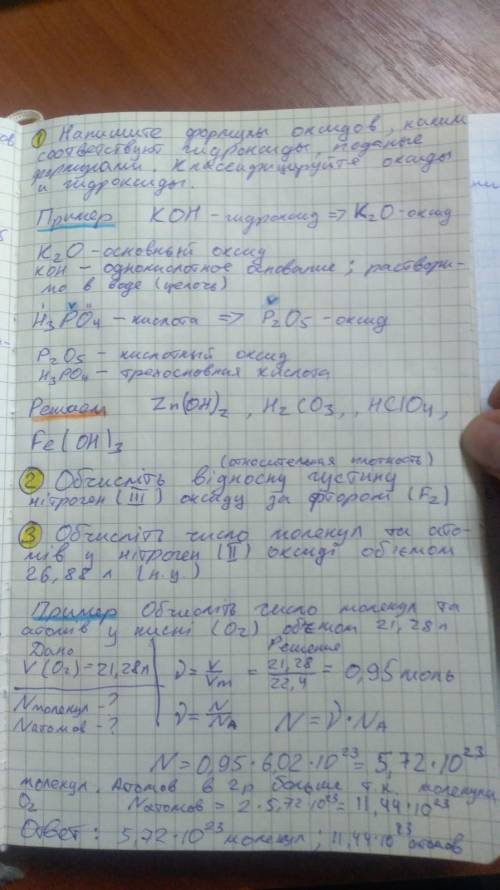 1 Напишите формулы оксидов, каким
соответствуют гидроксиды, поданые
формулами. Классифицируйте оксиды
и гидроксиды.
Пример KOH - гидроксид => K₂O - оксид
K₂O - основный оксид
KOH - однокислотное основание; раствори-
мо в воде (щелочь)
H₃PO₄ - кислота => P₂O₅ - оксид
P₂O₅ - кислотный оксид
H₃PO₄ - трехосновная кислота
Решаем Zn(OH)₂, H₂CO₃, HClO₄,
Fe(OH)₃
(относительная плотность)
2 Обчисліть відносну густину
нітроген (III) оксиду за фтором (F₂)
3 Обчисліть число молекул та ато-
мів у нітроген (II) оксиді об'ємом
26,88 л (н.у.)
Пример Обчисліть число молекул та
атомів у кисні (O₂) объемом 21,28 л
Дано Решение
V(O₂) = 21,28 л ν = V/Vm = 21,28/22,4 = 0,95 моль
N молекул - ?
N атомов - ? ν = N/NA N = ν · NA
N = 0,95 · 6,02 · 10²³ = 5,72 · 10²³
молекул. Атомов в 2р больше т.к. молекула
O₂ N атомов = 2 · 5,72 · 10²³ = 11,44 · 10²³
Ответ: 5,72 · 10²³ молекул; 11,44 · 10²³ атомов